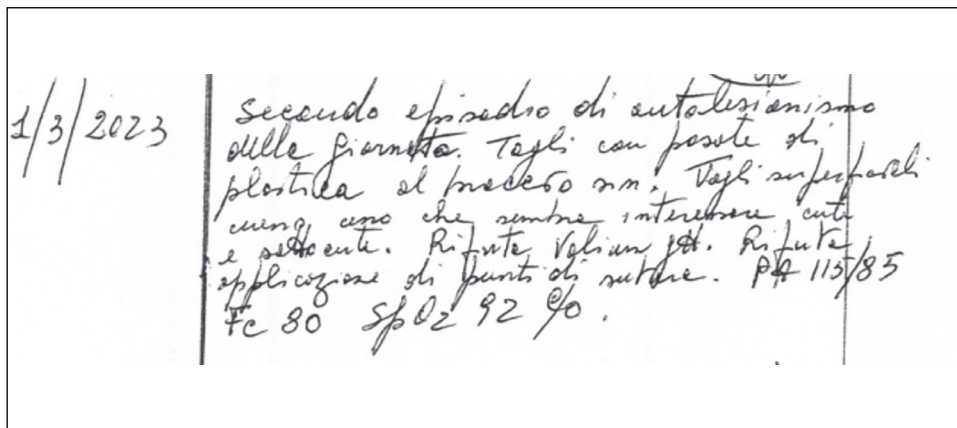 1/3/2023
Secondo episodio di autolesionismo
della giornata. Tagli con posate di
plastica al braccio sin. Tagli superficiali
meno uno che sembra interessare cute
e sottocute. Rifiuta Valium gtt. Rifiuta
applicazione di punti di sutura. PA 115/85
Fc 80 SpO2 92 %.